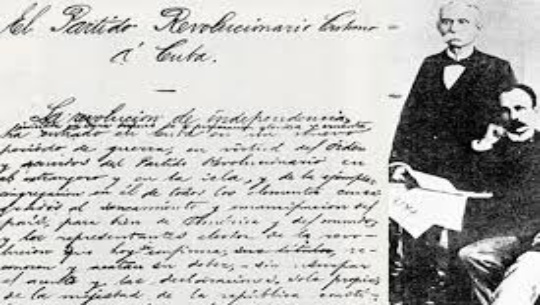 El Partido Revolucionario Cubano
á Cuba.
La revolucion de independencia,
iniciada en Yara despues de preparacion gloriosa y cruenta,
ha entrado en Cuba en un nuevo
periodo de guerra, en virtud del orden
y acuerdos del Partido Revolucionario en
el extranjero y en la isla, y de la ejemplar
congregacion en él de todos los elementos consa-
grados al saneamiento y emancipacion del
pais, para bien de America y del mundo;
y los representantes electos de la revo-
lucion que hoy se confirma, re-
conocen y acatan su deber, - sin usurpar
el acento y las declaraciones solo propias
de la majestad de la república consti-